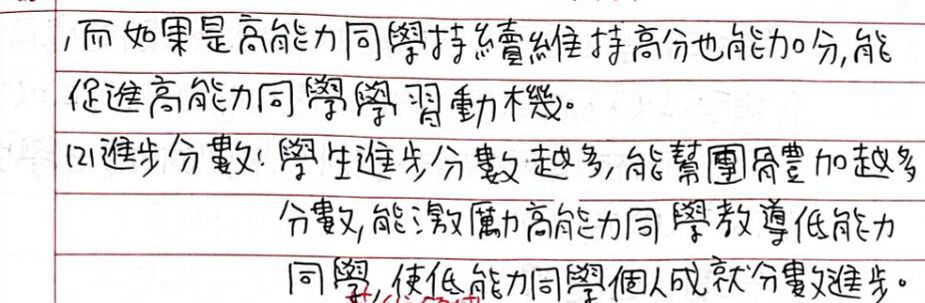 ,而如果是高能力同學持續維持高分也能加分,能
促進高能力同學學習動機。
(2)進步分數:學生進步分數越多,能幫團體加越多
分數,能激勵高能力同學教導低能力
同學,使低能力同學個人成就分數進步。